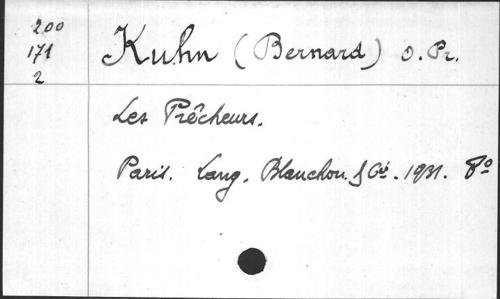 200
171
2
Kuhn (Bernard) O. Pr.
Les Prêcheurs.
Paris. Lang, Blanchon & Cie. 1931. 8º